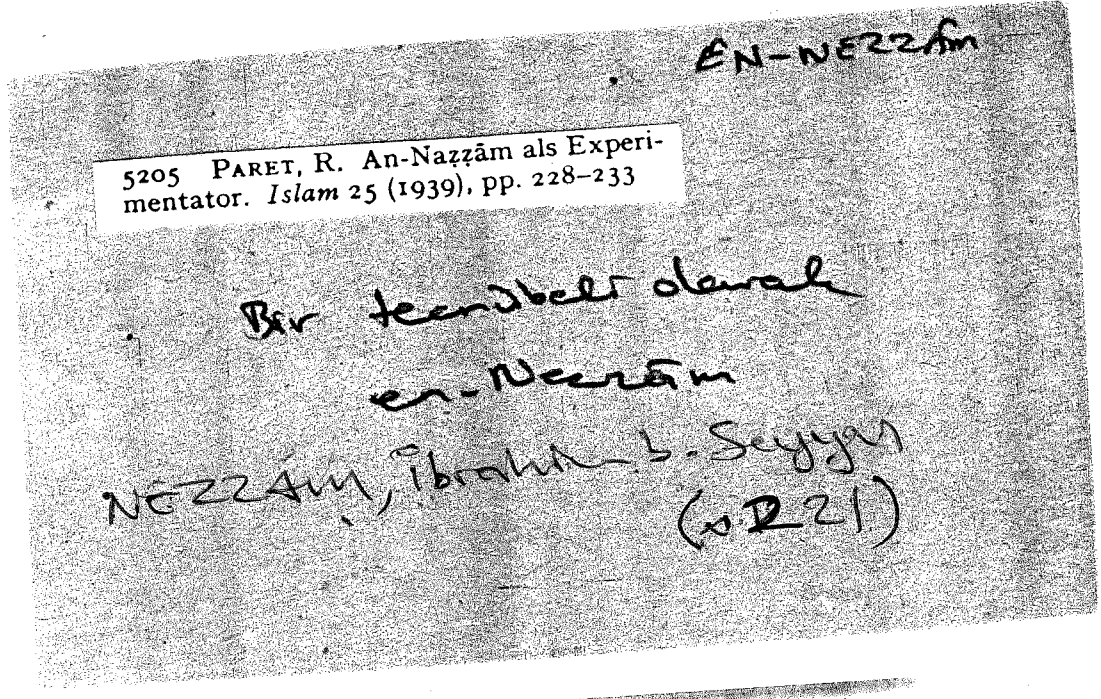 EN-NEZZÂm
5205 PARET, R. An-Naẓẓām als Experi-
mentator. Islam 25 (1939), pp. 228–233
Bir tecrübeli olarak
en-Nezzâm
NEZZÂM, İbrahim b. Seyyar
221)